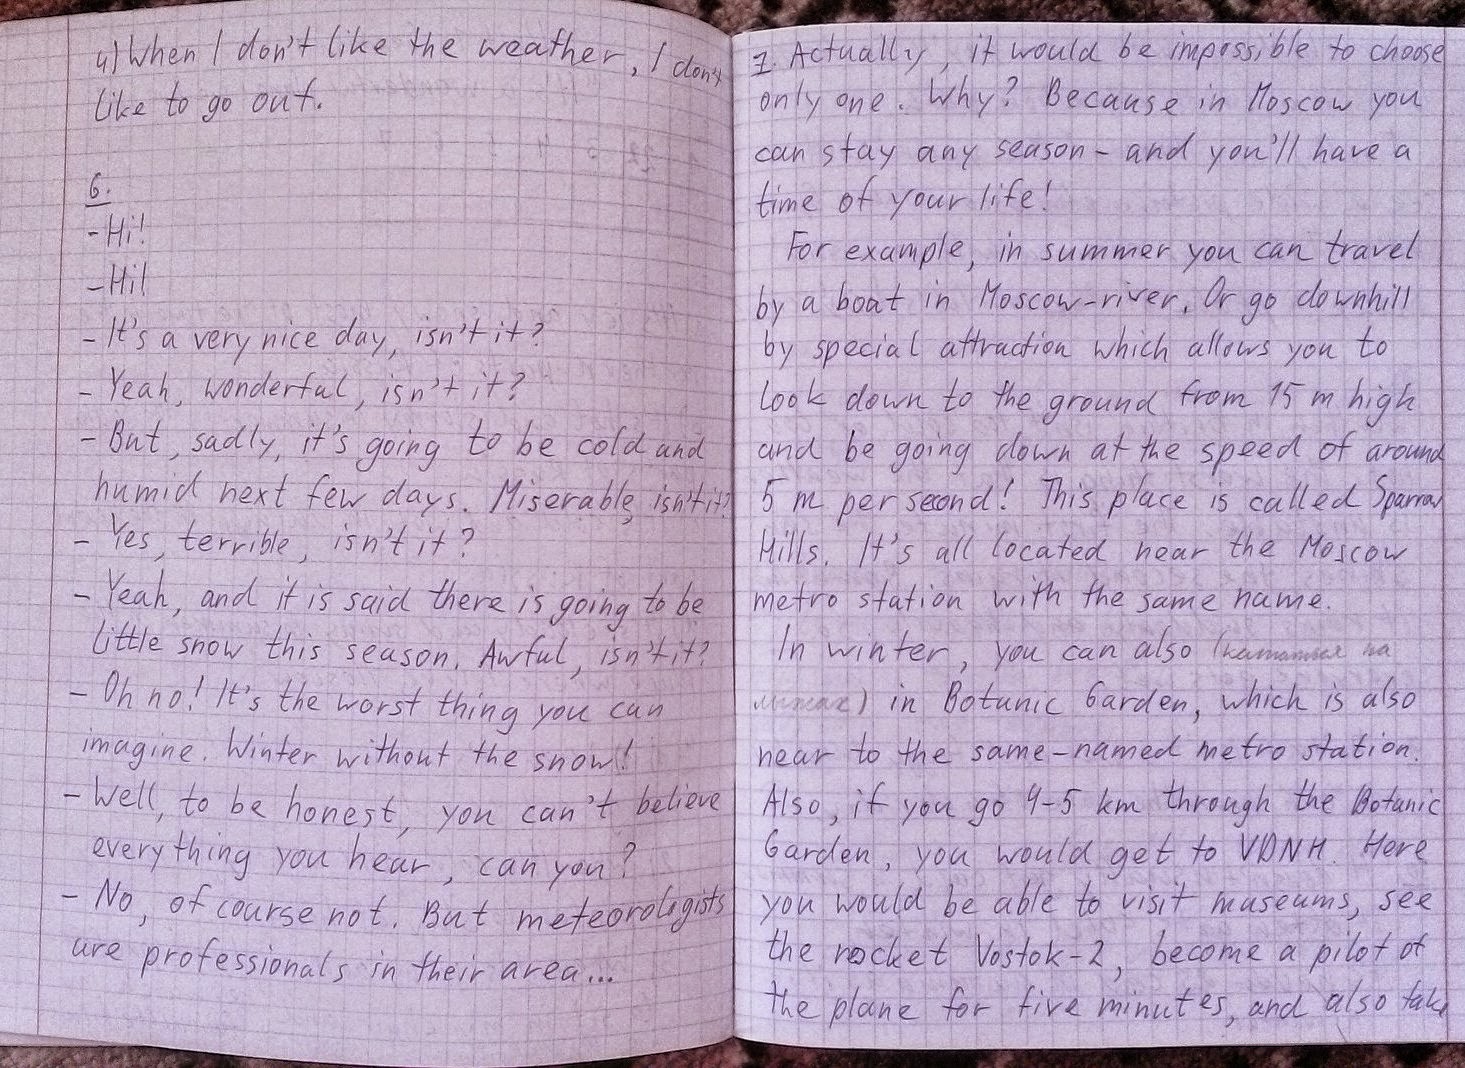 4) When I don't like the weather, I don't
like to go out.
6.
- Hi!
- Hi!
- It's a very nice day, isn't it?
- Yeah, wonderful, isn't it?
- But, sadly, it's going to be cold and
humid next few days. Miserable, isn't it?
- Yes, terrible, isn't it?
- Yeah, and it is said there is going to be
little snow this season. Awful, isn't it?
- Oh no! It's the worst thing you can
imagine. Winter without the snow!
- Well, to be honest, you can't believe
everything you hear, can you?
- No, of course not. But meteorologists
are professionals in their area...
7. Actually, it would be impossible to choose
only one. Why? Because in Moscow you
can stay any season - and you'll have a
time of your life!
For example, in summer you can travel
by a boat in Moscow-river. Or go downhill
by special attraction which allows you to
look down to the ground from 15 m high
and be going down at the speed of around
5 m per second! This place is called Sparrow
Hills. It's all located near the Moscow
metro station with the same name.
In winter, you can also (кататься на
лыжах) in Botanic Garden, which is also
near to the same-named metro station.
Also, if you go 4-5 km through the Botanic
Garden, you would get to VDNH. Here
you would be able to visit museums, see
the rocket Vostok-2, become a pilot of
the plane for five minutes, and also take